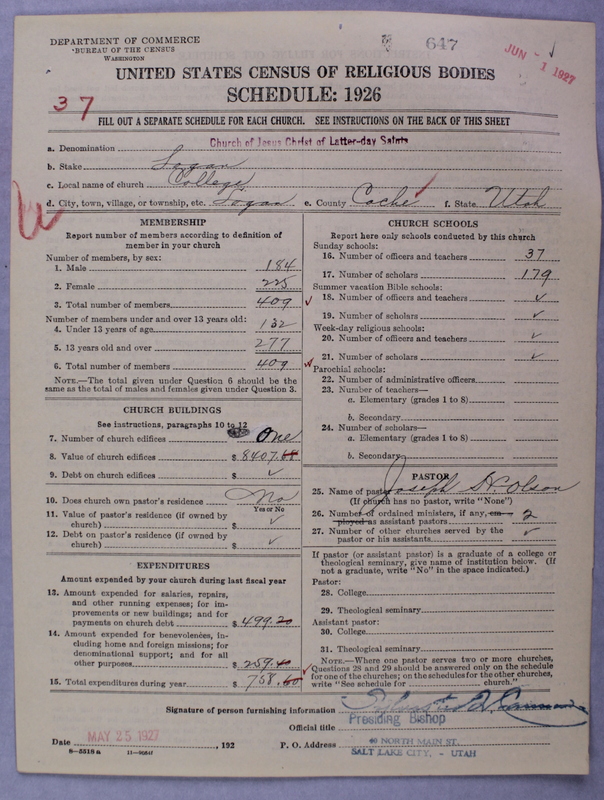 DEPARTMENT OF COMMERCE
BUREAU OF THE CENSUS
WASHINGTON
647
JUN 1 1927
UNITED STATES CENSUS OF RELIGIOUS BODIES
SCHEDULE: 1926
37
FILL OUT A SEPARATE SCHEDULE FOR EACH CHURCH. SEE INSTRUCTIONS ON THE BACK OF THIS SHEET
a. Denomination Church of Jesus Christ of Latter-day Saints
b. Stake Logan
c. Local name of church College
d. City, town, village, or township, etc. Logan e. County Cache f. State Utah
MEMBERSHIP
Report number of members according to definition of
member in your church
Number of members, by sex:
1. Male 184
2. Female 225
3. Total number of members 409
Number of members under and over 13 years old:
4. Under 13 years of age 132
5. 13 years old and over 277
6. Total number of members 409
NOTE.—The total given under Question 6 should be the
same as the total of males and females given under Question 3.
CHURCH BUILDINGS
See instructions, paragraphs 10 to 12
7. Number of church edifices One
8. Value of church edifices $ 8407.
9. Debt on church edifices $ ✓
10. Does church own pastor's residence No
Yes or No
11. Value of pastor's residence (if owned by
church) $ ✓
12. Debt on pastor's residence (if owned by
church) $ ✓
EXPENDITURES
Amount expended by your church during last fiscal year
13. Amount expended for salaries, repairs,
and other running expenses; for im-
provements or new buildings; and for
payments on church debt $ 499.20
14. Amount expended for benevolences, in-
cluding home and foreign missions; for
denominational support; and for all
other purposes $ 259.40
15. Total expenditures during year $ 758.60
CHURCH SCHOOLS
Report here only schools conducted by this church
Sunday schools:
16. Number of officers and teachers 37
17. Number of scholars 179
Summer vacation Bible schools:
18. Number of officers and teachers ✓
19. Number of scholars ✓
Week-day religious schools:
20. Number of officers and teachers ✓
21. Number of scholars ✓
Parochial schools:
22. Number of administrative officers
23. Number of teachers—
a. Elementary (grades 1 to 8)
b. Secondary
24. Number of scholars—
a. Elementary (grades 1 to 8)
b. Secondary
PASTOR
25. Name of pastor Joseph H. Olsen
(If church has no pastor, write "None")
26. Number of ordained ministers, if any, em-
ployed as assistant pastors 2
27. Number of other churches served by the
pastor or his assistants ✓
If pastor (or assistant pastor) is a graduate of a college or
theological seminary, give name of institution below. (If
not a graduate, write "No" in the space indicated.)
Pastor:
28. College
29. Theological seminary
Assistant pastor:
30. College
31. Theological seminary
NOTE.—Where one pastor serves two or more churches,
Questions 28 and 29 should be answered only on the schedule
for one of the churches; on the schedules for the other churches,
write "See schedule for church."
Signature of person furnishing information
Official title Presiding Bishop
Date MAY 25 1927 , 192 P. O. Address 40 NORTH MAIN ST.
SALT LAKE CITY, - UTAH